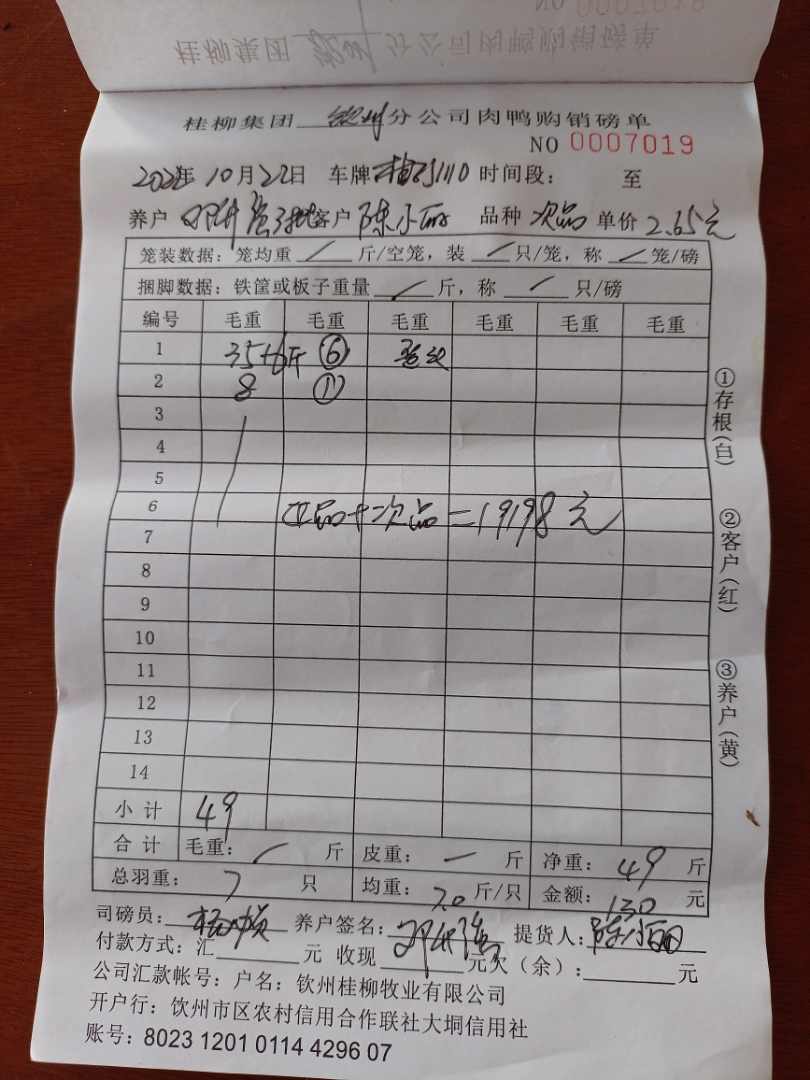 桂柳集团 钦州 分公司肉鸭购销磅单
NO 0007019
10月22日 车牌 时间段: 至
养户 客户 陈小丽 品种 次品 单价 2.65元
笼装数据: 笼均重 / 斤/空笼, 装 / 只/笼, 称 / 笼/磅
捆脚数据: 铁筐或板子重量 / 斤, 称 / 只/磅
编号 毛重 毛重 毛重 毛重 毛重 毛重
1 35+6斤 ⑥
2 8 ①
3
4
5
6 正品+次品=19198元
7
8
9
10
11
12
13
14
小计 49
合计 毛重: / 斤 皮重: 一 斤 净重: 49 斤
总羽重: 7 只 均重: 7.0 斤/只 金额: 130 元
司磅员: 养户签名: 提货人: 陈小丽
付款方式: 汇 元 收现 元欠(余): 元
公司汇款帐号: 户名: 钦州桂柳牧业有限公司
开户行: 钦州市区农村信用合作联社大垌信用社
账号: 8023 1201 0114 4296 07
①存根(白)
②客户(红)
③养户(黄)